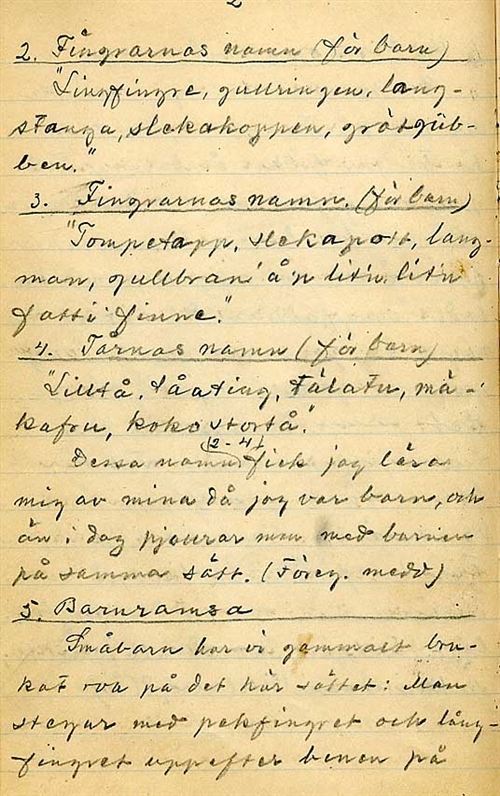 2
2. Fingrarnas namn (för barn)
"Lingfingre, gullringen, lang-
stanga, slekakoppen, grötgub-
ben."
3. Fingrarnas namn. (för barn)
"Tompetapp, slekapott, lang-
man, gullbran' å'n lit'n lit'n
fatti finne."
4. Tårnas namn (för barn)
"Lilltå, tåating, tålatu, mä-
kafru, koko stortå."
Dessa namn (2-4) fick jag lära
mig av mina då jag var barn, och
än i dag pjaurar man med barnen
på samma sätt. (Föreg. medd)
5. Barnramsa
Småbarn har vi gammalt bru-
kat roa på det här sättet: Man
stegar med pekfingret och lång-
fingret uppefter benen på